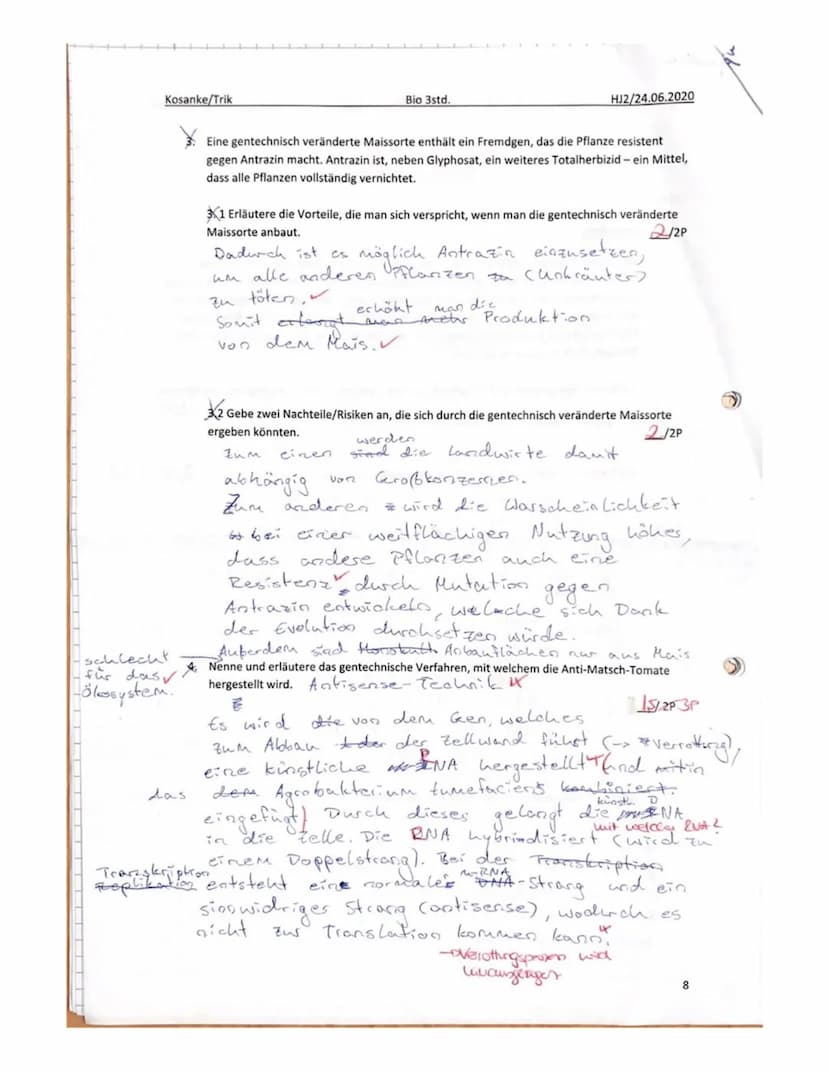 Kosanke/Trik Bio 3std. HJ2/24.06.2020
3. Eine gentechnisch veränderte Maissorte enthält ein Fremdgen, das die Pflanze resistent
gegen Antrazin macht. Antrazin ist, neben Glyphosat, ein weiteres Totalherbizid – ein Mittel,
dass alle Pflanzen vollständig vernichtet.
3.1 Erläutere die Vorteile, die man sich verspricht, wenn man die gentechnisch veränderte
Maissorte anbaut. 2/2P
Dadurch ist es möglich Antrazin einzusetzen,
um alle anderen Pflanzen zu (Unkräuter)
zu töten. ✓
erhöht man die
Somit erlangt man mehr Produktion
von dem Mais. ✓
3.2 Gebe zwei Nachteile/Risiken an, die sich durch die gentechnisch veränderte Maissorte
ergeben könnten. 2/2P
werden
Zum einen sind die Landwirte damit
abhängig von Großkonzernen.
Zum anderen wird die Warscheinlichkeit
bei einer weitflächigen Nutzung höher,
dass andere Pflanzen auch eine
Resistenz ✓ durch Mutation gegen
Antrazin entwickeln, welche sich Dank
der Evolution durchsetzen würde.
Außerdem sind Anbauflächen nur aus Mais
schlecht
für das ✓
Ökosystem.
4. Nenne und erläutere das gentechnische Verfahren, mit welchem die Anti-Matsch-Tomate
hergestellt wird. Antisense-Technik
1,5/2P 3P
Es wird von dem Gen, welches
zum Abbau der Zellwand führt (-> Verrottung),
eine künstliche RNA hergestellt und in
das dem Agrobakterium tumefaciens kombiniert.
künstl. D
eingefügt) Durch dieses gelangt die RNA
mit welcher RNA?
in die Zelle. Die RNA hybridisiert (wird zu
einem Doppelstrang). Bei der Transkription
Transkription
Replikation entsteht eine normaler DNA-Strang und ein
m-RNA
sinnwidriges Strang (antisense), wodurch es
nicht zur Translation kommen kann.
Verottungsprozess wird
8